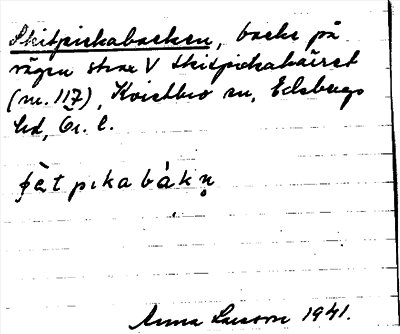 Skitpickabacken, backe på
vägen strax V Skitpickakärret
(nr. 117), Kvistbro sn, Edsbergs
hd, Ör. l.
ʃètpıkabàkn̥
Anna Larsson 1941.